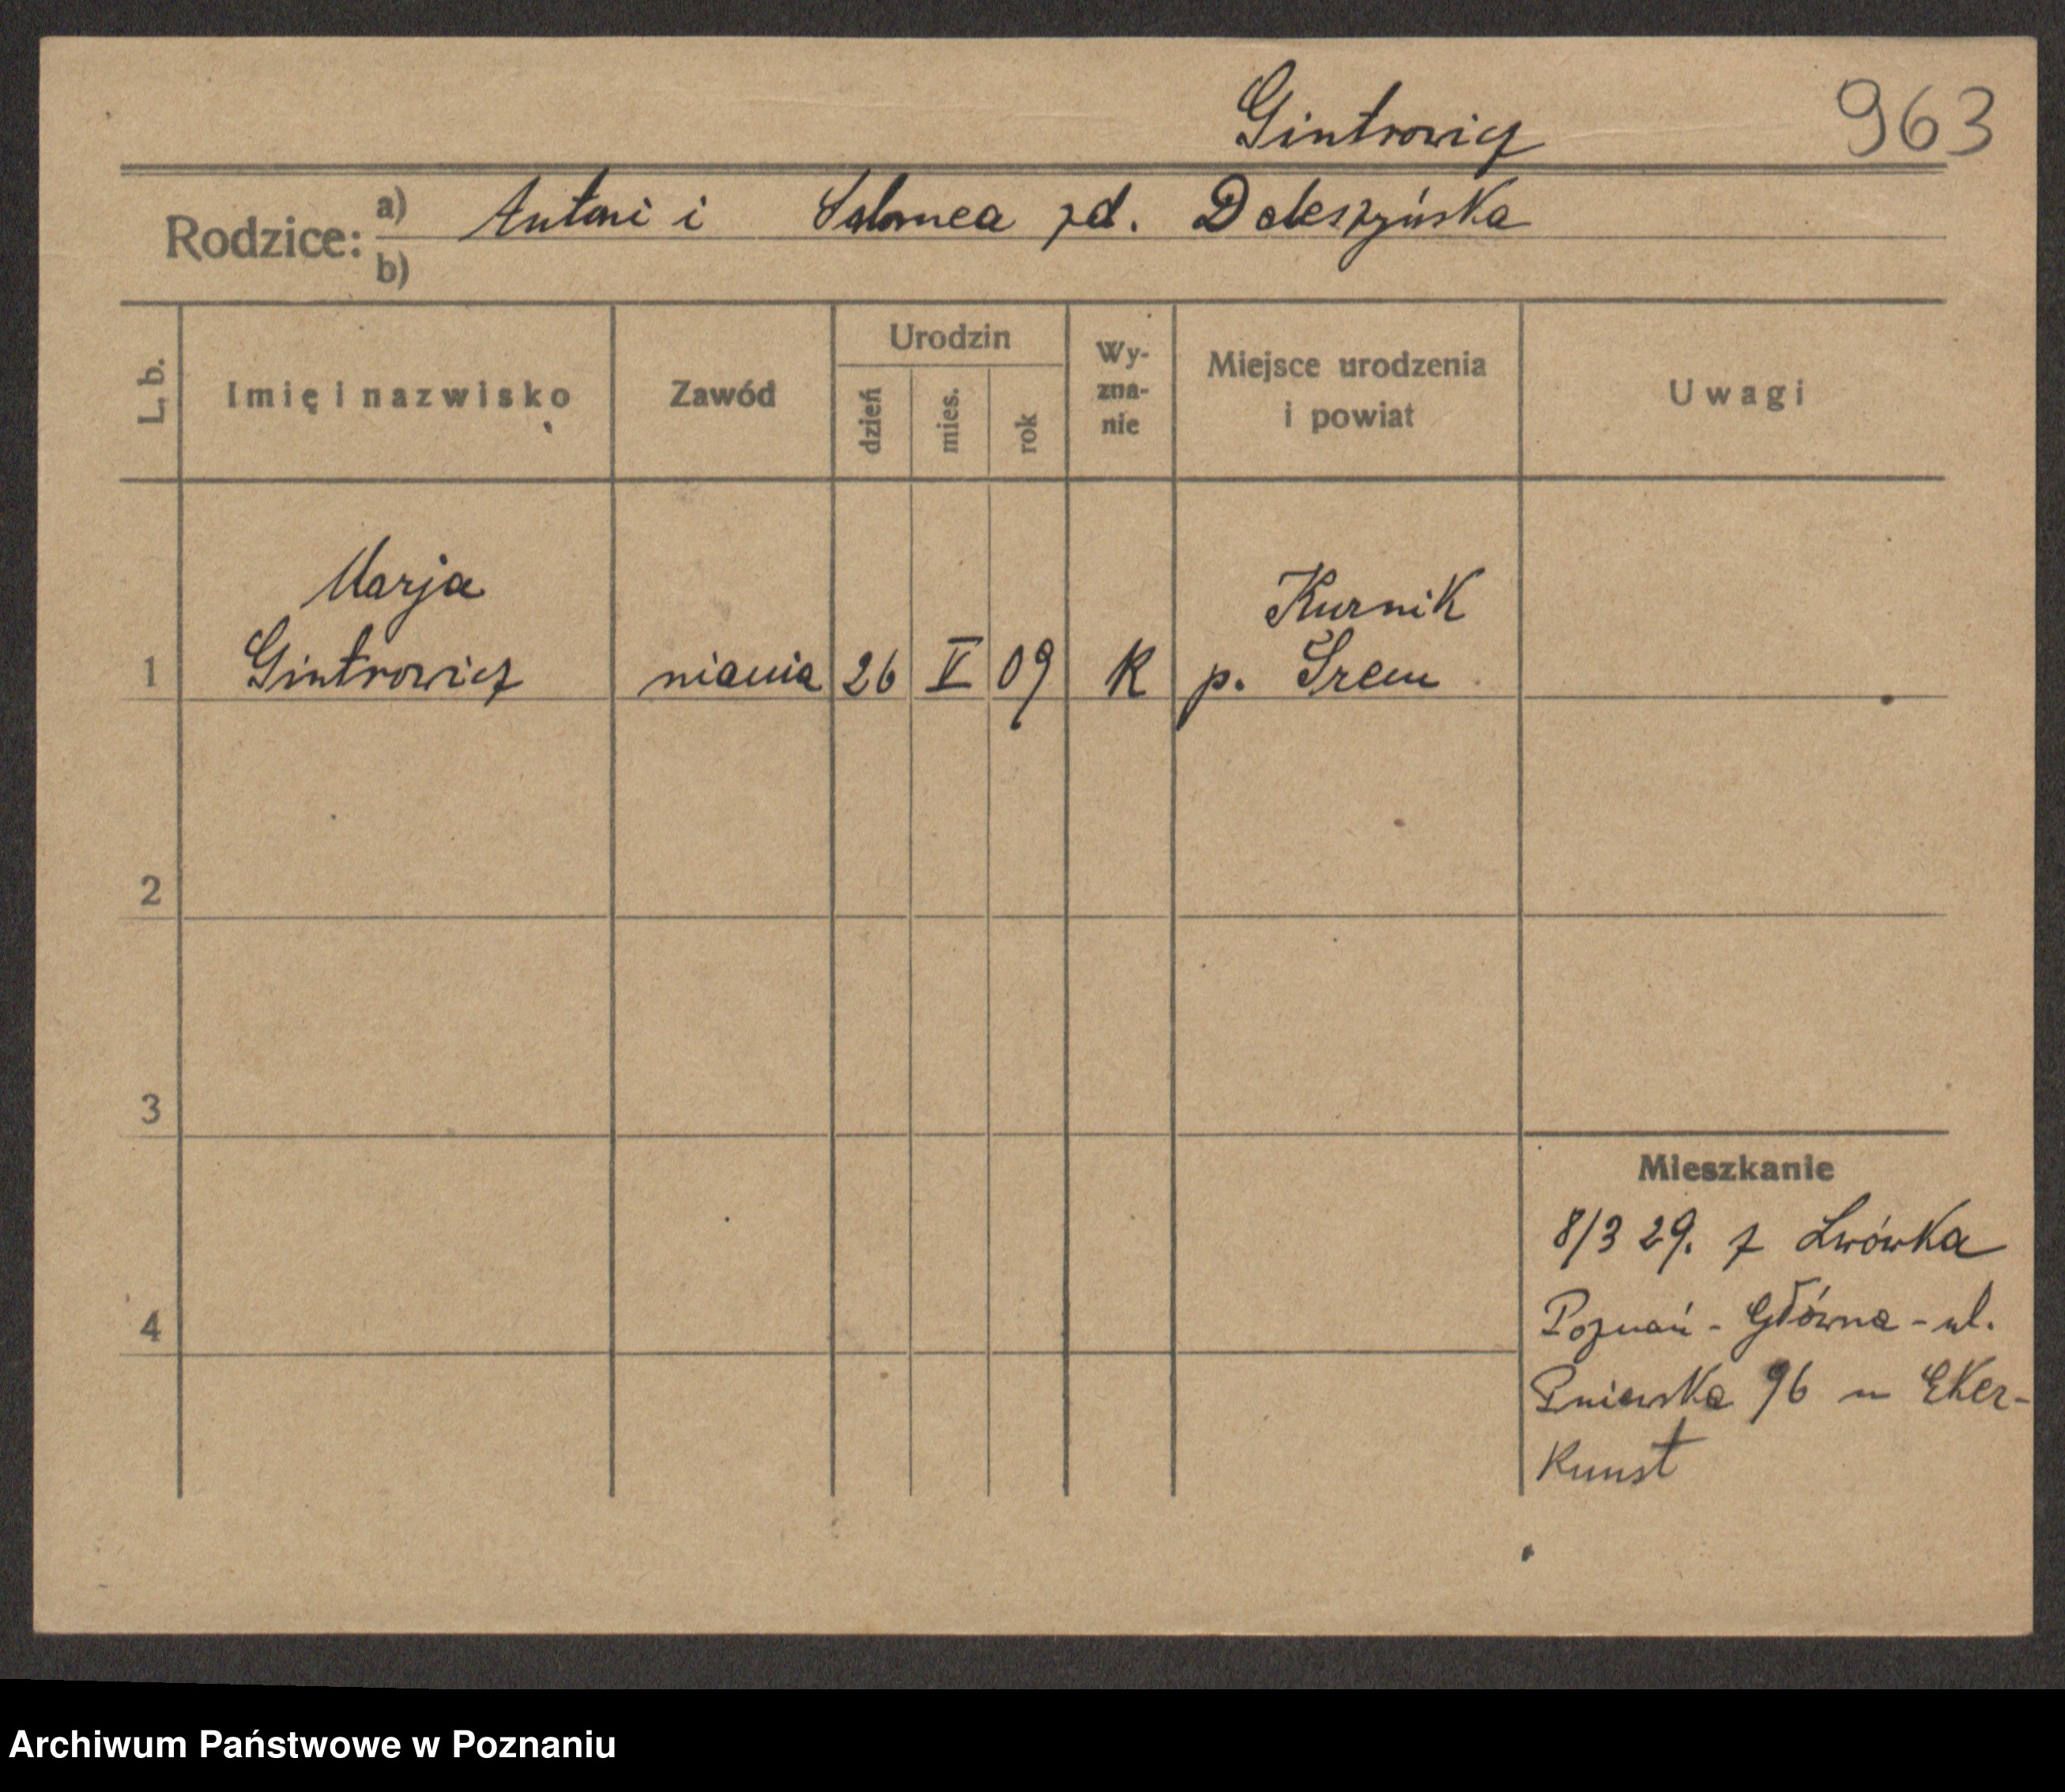 Gintrowicz 963
Rodzice: a) Antoni i Salomea zd. Doleszyńska
b)
L. b. Imię i nazwisko Zawód Urodzin dzień mies. rok Wyznanie Miejsce urodzenia i powiat Uwagi
Marja Kurnik
1 Gintrowicz niania 26 V 09 K p. Śrem
2
3
Mieszkanie
8/3 29. z Lwówka
4 Poznań - Główna - ul.
Gniewska 96 u Eker-
Kunst
Archiwum Państwowe w Poznaniu